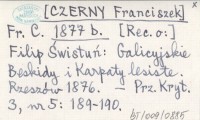 [CZERNY Franciszek]
Fr. C. 1877 b. [Rec. o:]
Filip Świstuń: Galicyjskie
Beskidy i Karpaty lesiste.
Rzeszów 1876. — Prz. Kryt.
3, nr 5: 189-190.
bT/009/0885